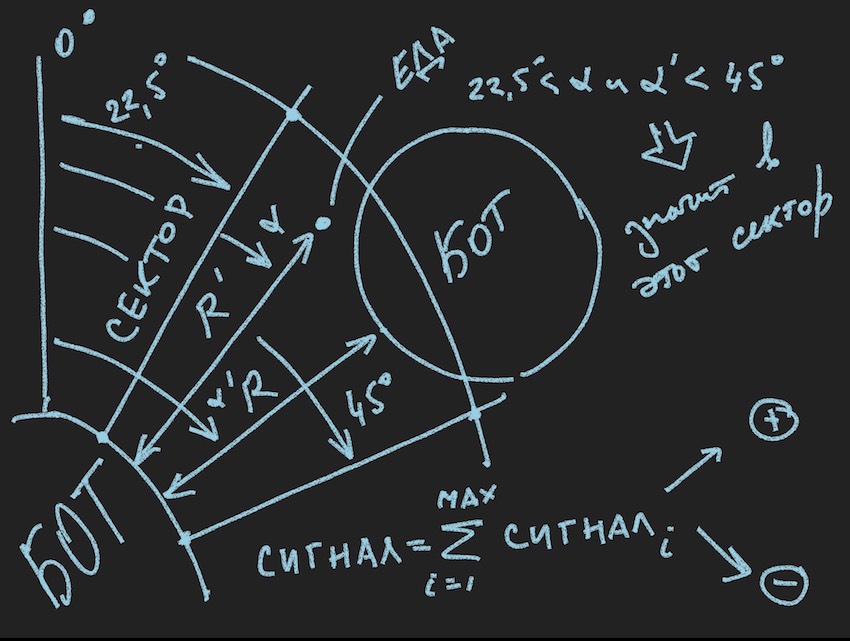 0°
22,5°
СЕКТОР
ЕДА
22,5° < α и α' < 45°
значит в
этот сектор
БОТ
α
R'
α'
R
45°
БОТ
MAX
СИГНАЛ = Σ СИГНАЛ i
i=1
+
−